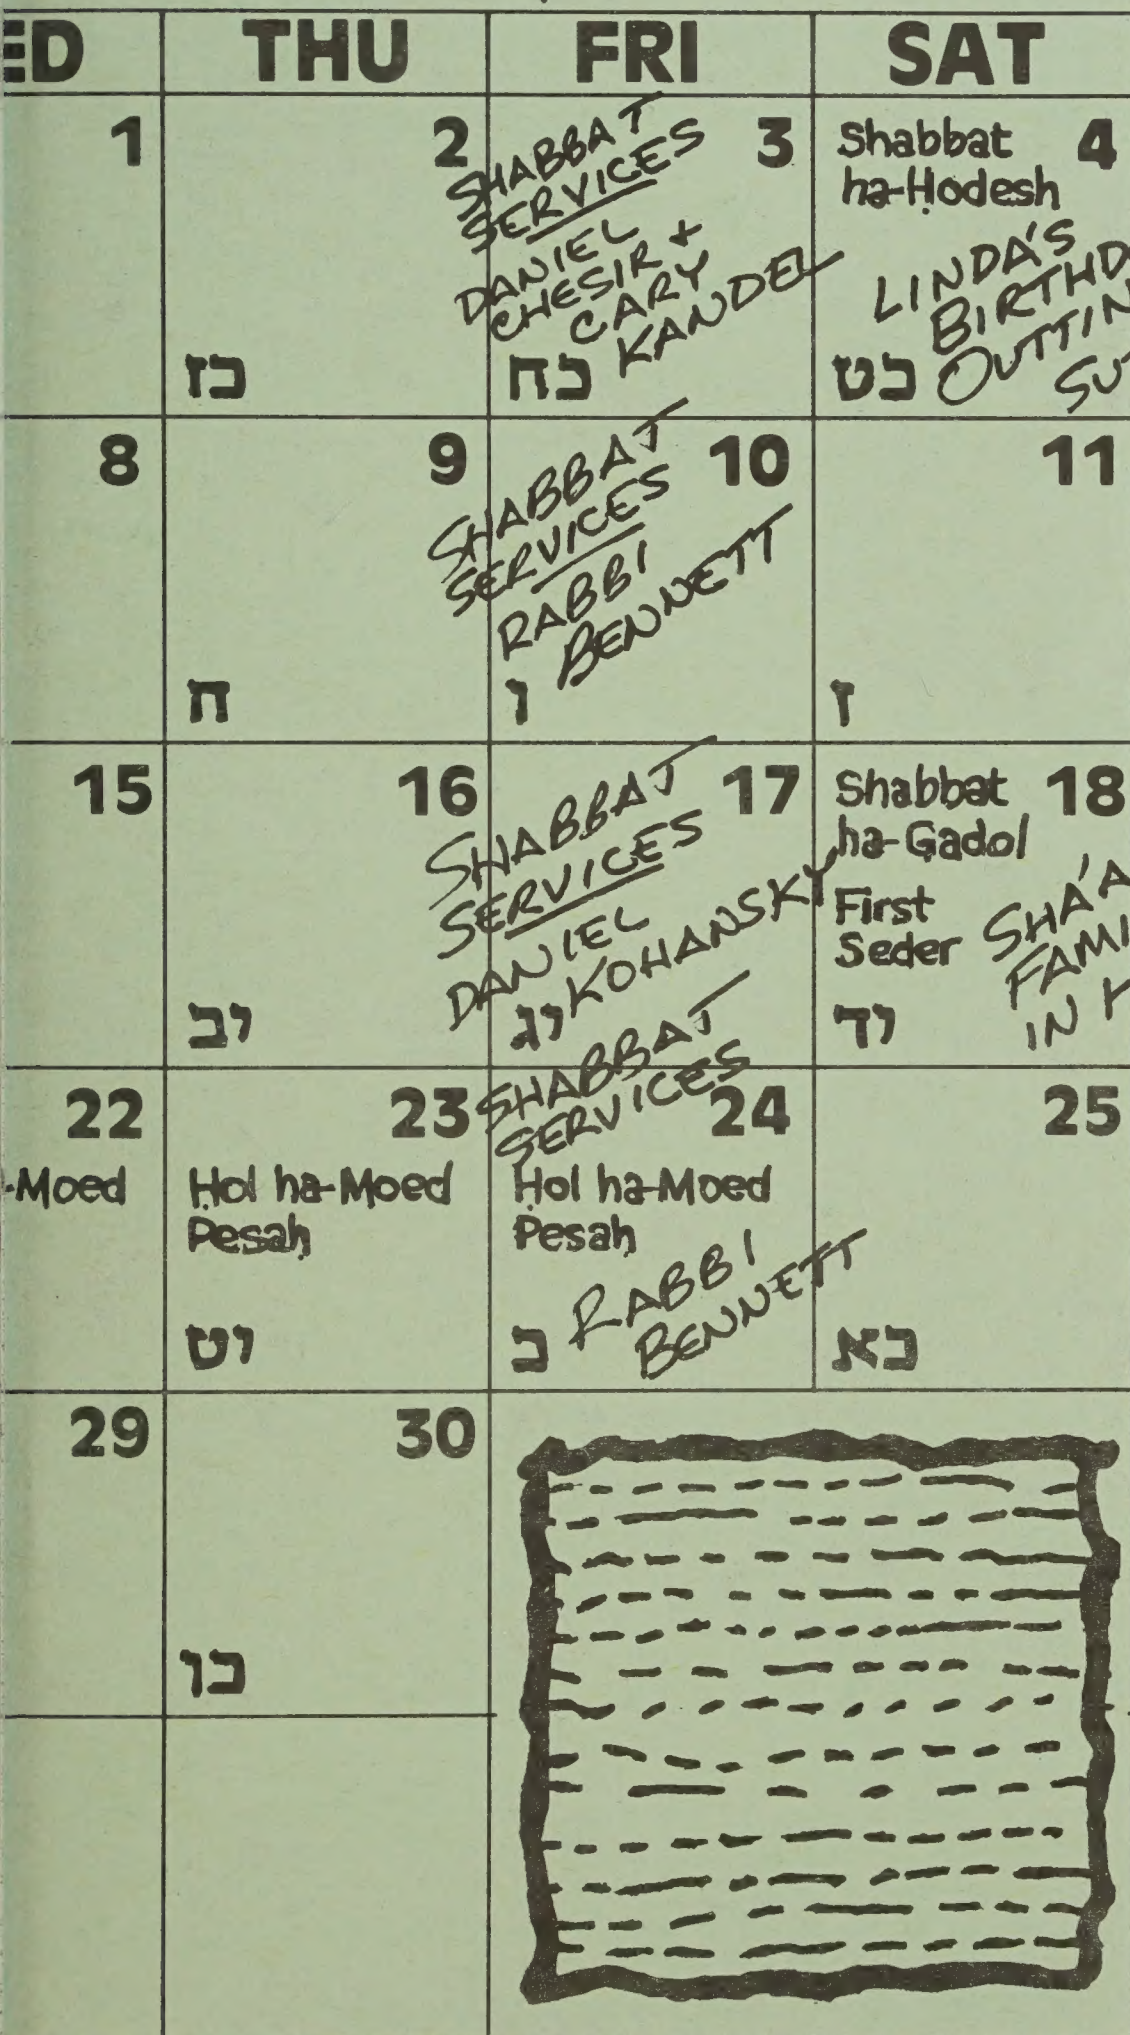 ED THU FRI SAT
1
2
SHABBAT
SERVICES
DANIEL
CHESIR +
CARY
KANDEL
3
Shabbat
ha-Ḥodesh
4
LINDA'S
BIRTHD
OUTTIN
SU
כז
כח
כט
8
9
SHABBAT
SERVICES
RABBI
BENNETT
10
11
ח
ו
ז
15
16
SHABBAT
SERVICES
DANIEL
KOHANSKY
17
Shabbat
ha-Gadol
First
Seder
18
SHA'A
FAMI
IN Y
יב
יג
יד
22
-Moed
23
Ḥol ha-Moed
Pesaḥ
SHABBAT
SERVICES
24
Ḥol ha-Moed
Pesaḥ
RABBI
BENNETT
25
יט
כ
כא
29
30
כו